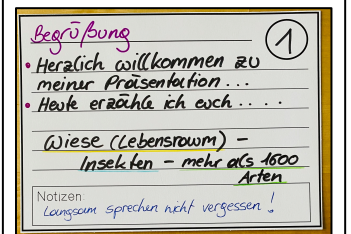 Begrüßung
1
• Herzlich willkommen zu
meiner Präsentation ...
• Heute erzähle ich euch ....
Wiese (Lebensraum) –
Insekten – mehr als 1600
Arten
Notizen:
Langsam sprechen nicht vergessen!